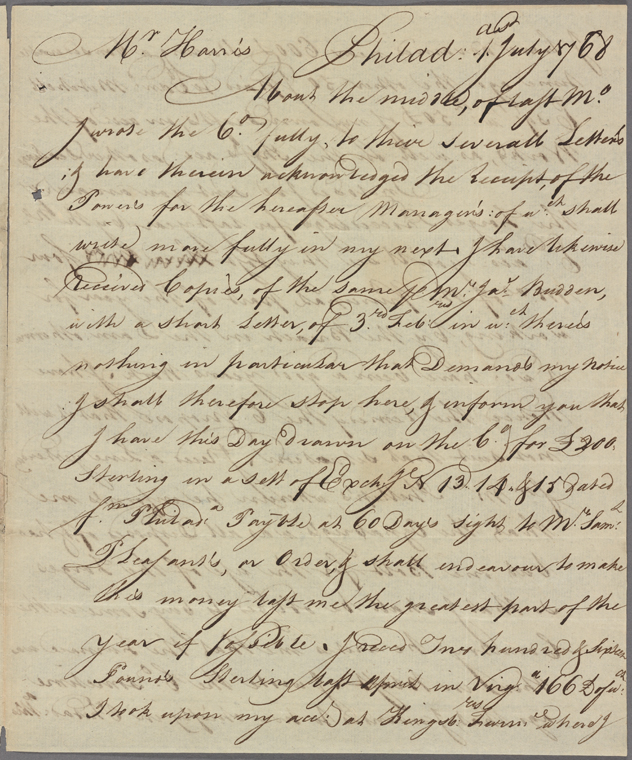 Mr Harris Philad: 1st July 1768
About the middle, of last Mo
I wrote the Co fully, to thiere severall Letters
& have therein acknowledged the Receipt, of the
Powers for the hereafter Managers: of wch shall
write more fully in my next. I have likewise
Received Copies, of the same pr Mr Jas Budden,
with a short Letter, of 3rd Feb in wch there's
nothing in particular that Demands my notice
I shall therefore stop here, & inform you that
I have this Day drawn on the Co for £200.
Sterling in a sett of Exch No 13. 14. & 15 Dated
fm Philada Payble at 60 Days sight to Mr Saml
Pleasants, or Order, & shall endeavour to make
this money last me the greatest part of the
year if possible. I reced Two hundred & Sixteen
Pounds Sterling last April in Virga 166 Do of wch
I took upon my acct at Kingsb Farm where I